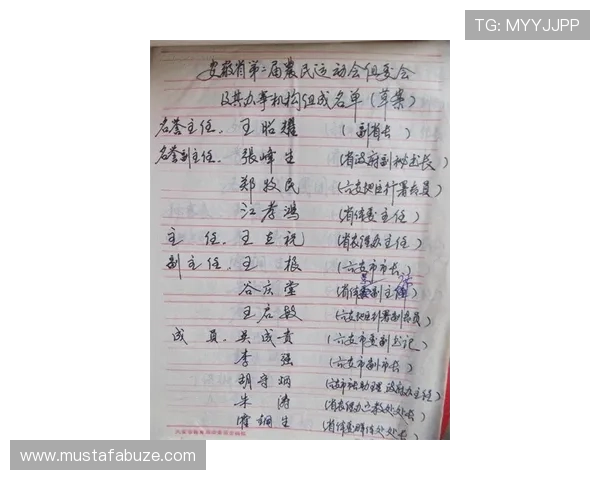 TG: MYYJJPP
安徽省第二届农民运动会组委会
及其办事机构组成名单（草案）
名誉主任：王昭耀（副省长）
名誉副主任：張峰生（省政府副秘书长）
郑牧民（六安地区行署专员）
江孝鸿（省体委主任）
主 任：王立祝（省农得办主任）
副主任：王 根（六安市市长）
谷庆堂（省体委副主任）
王启敏（六安地区行署副专员）
成 员：吴成贵（六安市委副书记）
李 强（六安市副市长）
胡守炳（六安市 主任）
朱 涛（省农得办 处处长）
桐生（省体委群体处处长）
www.mustafabuze.com